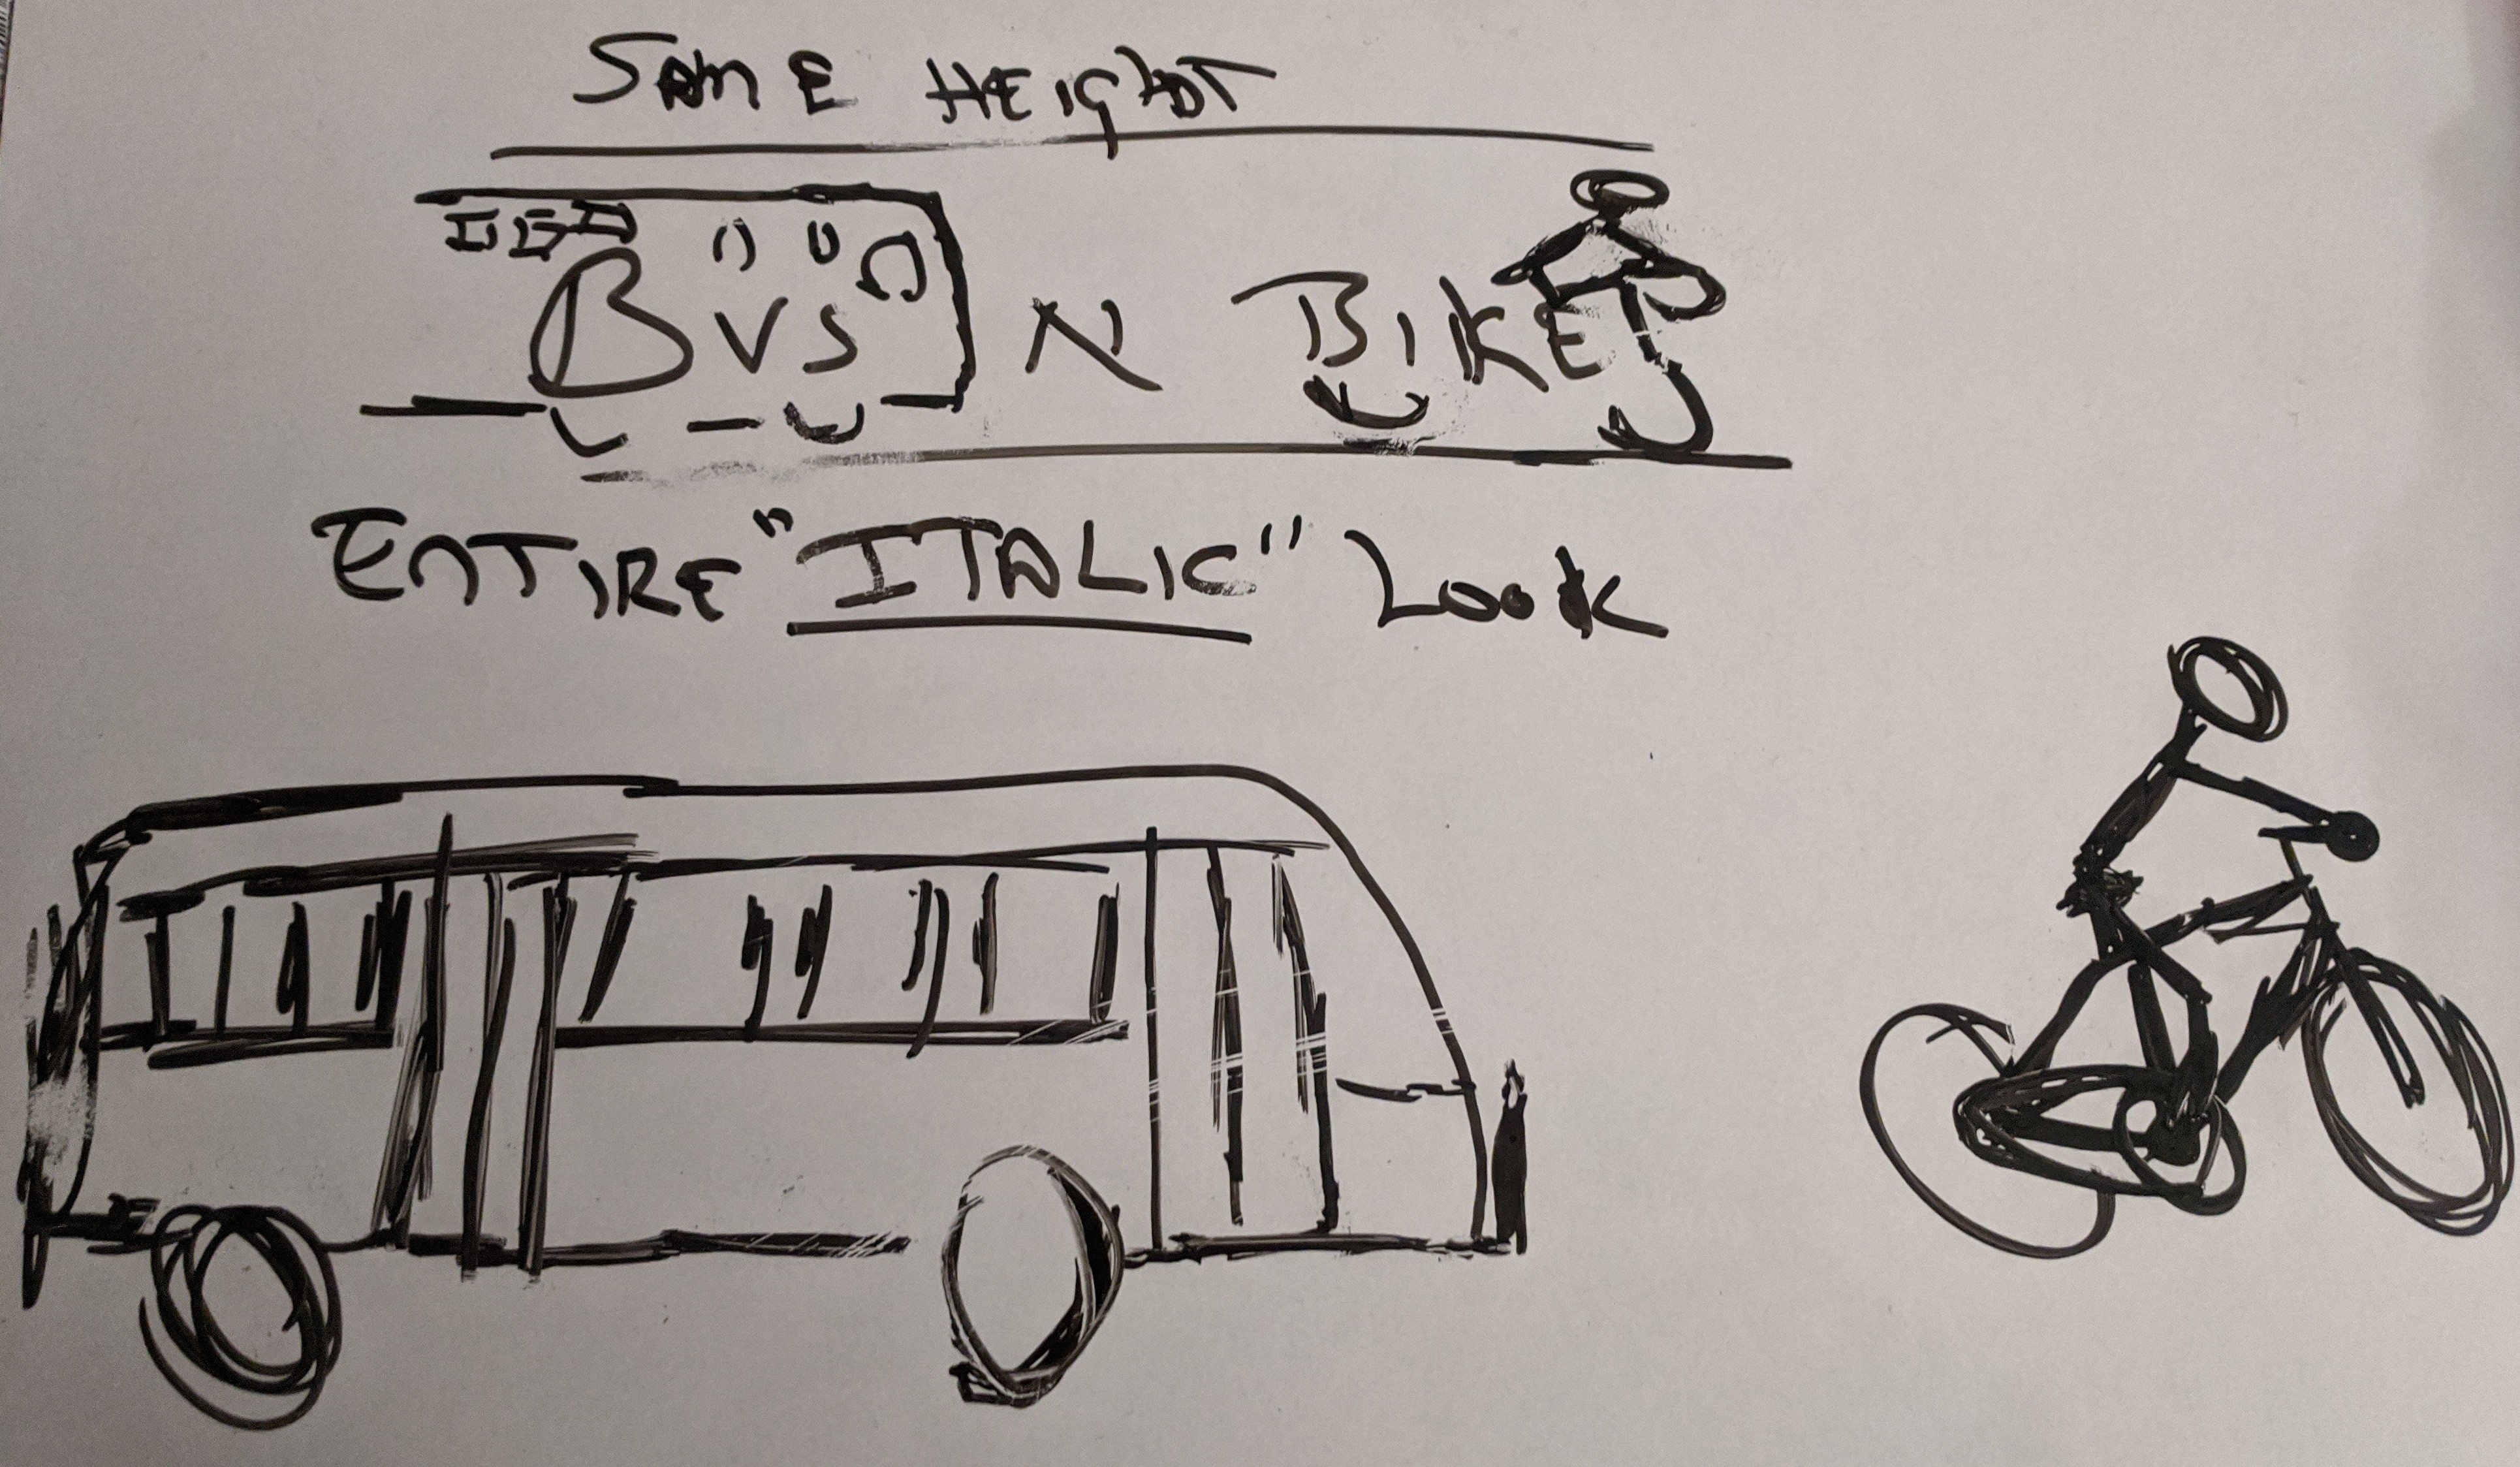 SAME HEIGHT
BUS N BIKE
ENTIRE "ITALIC" LOOK